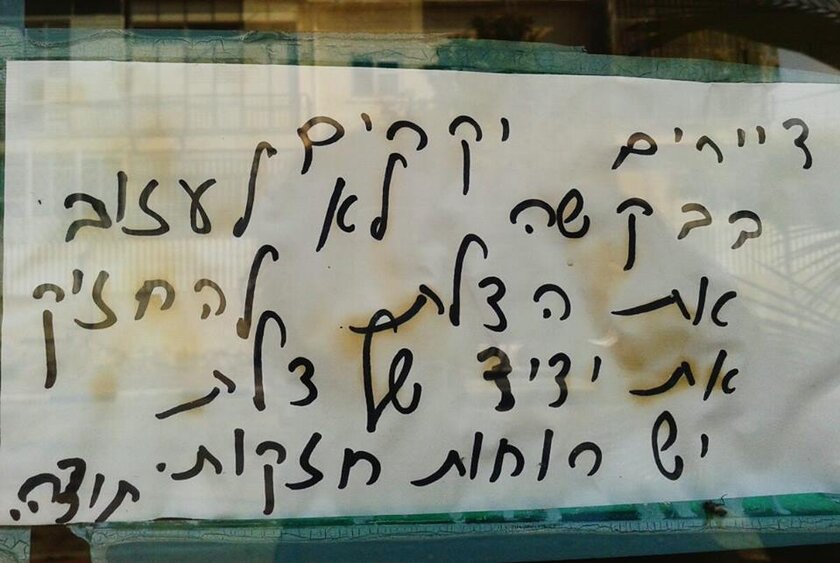 דיירים יקרים
בבקשה לא לעזוב
את הדלת להחזיק
את ידיד של דלת
יש רוחות חזקות.
תודה.